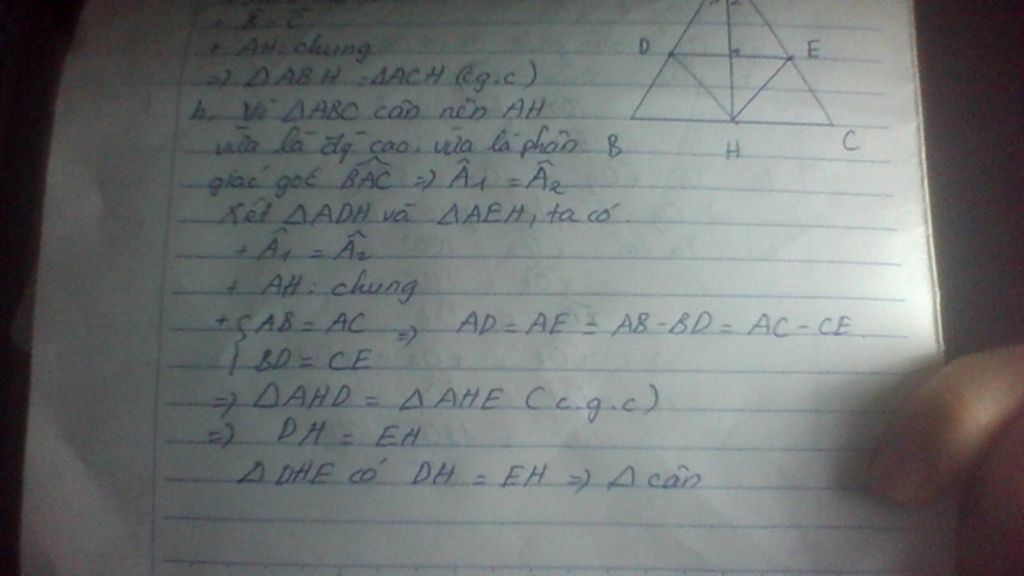 + B̂ = Ĉ
+ AH: chung
=) ΔABH = ΔACH (c.g.c)
b. Vì ΔABC cân nên AH
vừa là đg cao, vừa là phân
giác góc BAC =) Â1 = Â2
Xét ΔADH và ΔAEH, ta có
+ Â1 = Â2
+ AH: chung
+ { AB = AC =) AD = AE = AB - BD = AC - CE
BD = CE
=) ΔAHD = ΔAHE (c.g.c)
=) DH = EH
ΔDHE có DH = EH =) Δ cân
1 2
D E
B H C